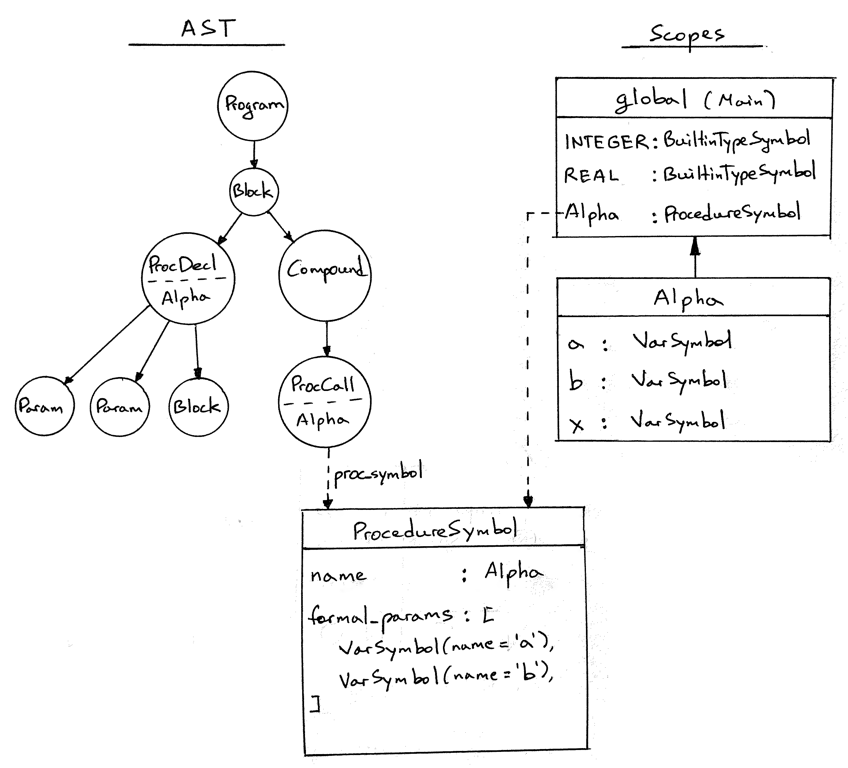 AST
Program
Block
ProcDecl
Alpha
Compound
Param
Param
Block
ProcCall
Alpha
proc_symbol
Scopes
global (Main)
INTEGER : BuiltinTypeSymbol
REAL : BuiltinTypeSymbol
Alpha : ProcedureSymbol
Alpha
a : VarSymbol
b : VarSymbol
x : VarSymbol
ProcedureSymbol
name : Alpha
formal_params : [
VarSymbol(name='a'),
VarSymbol(name='b'),
]